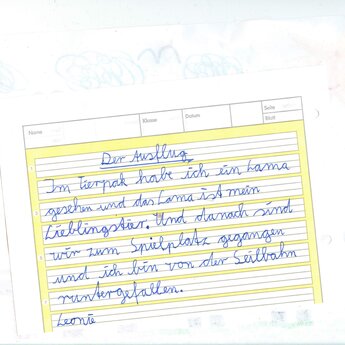 Name
Klasse
Datum
Seite
Blatt
Der Ausflug
Im Tierpak habe ich ein Lama
gesehen und das Lama ist mein
Lieblingstier. Und danach sind
wir zum Spielplatz gegangen
und ich bin von der Seilbahn
runtergefallen.
Leonie